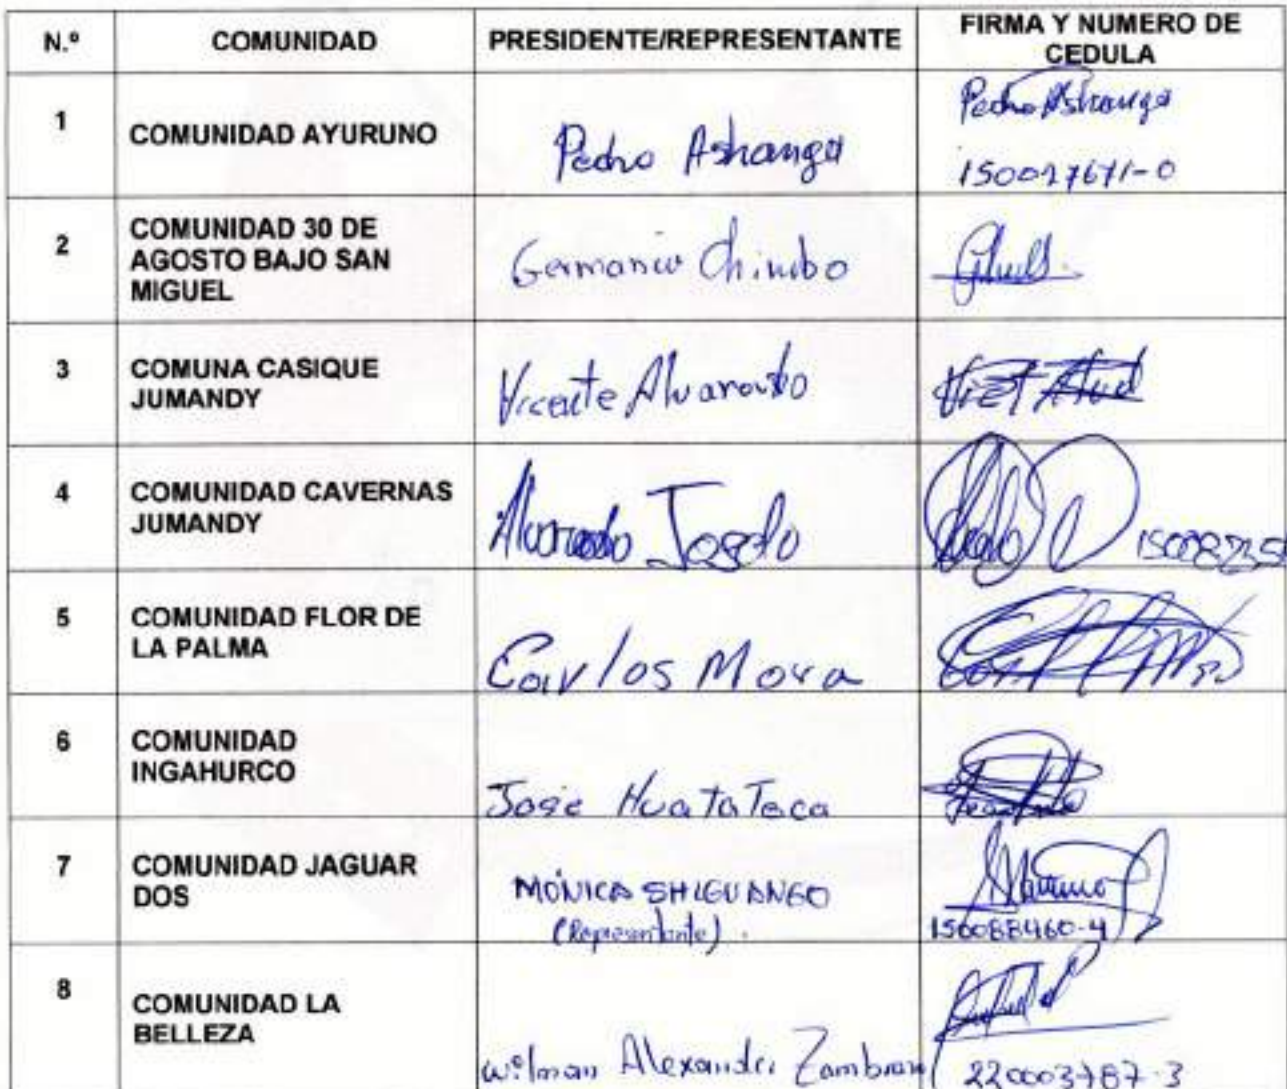 N.º COMUNIDAD PRESIDENTE/REPRESENTANTE FIRMA Y NUMERO DE
CEDULA
1 COMUNIDAD AYURUNO Pedro Ashanga Pedro Ashanga
150017671-0
2 COMUNIDAD 30 DE
AGOSTO BAJO SAN
MIGUEL
Germanico Chimbo
3 COMUNA CASIQUE
JUMANDY
Vicente Alvarado
4 COMUNIDAD CAVERNAS
JUMANDY
Alvarado
5 COMUNIDAD FLOR DE
LA PALMA
Carlos Mora
6 COMUNIDAD
INGAHURCO
Jose HuataToca
7 COMUNIDAD JAGUAR
DOS
MÓNICA SHIGUANGO
(Representante).
150088460-4
8 COMUNIDAD LA
BELLEZA
Wilman Zambran
220003787-3